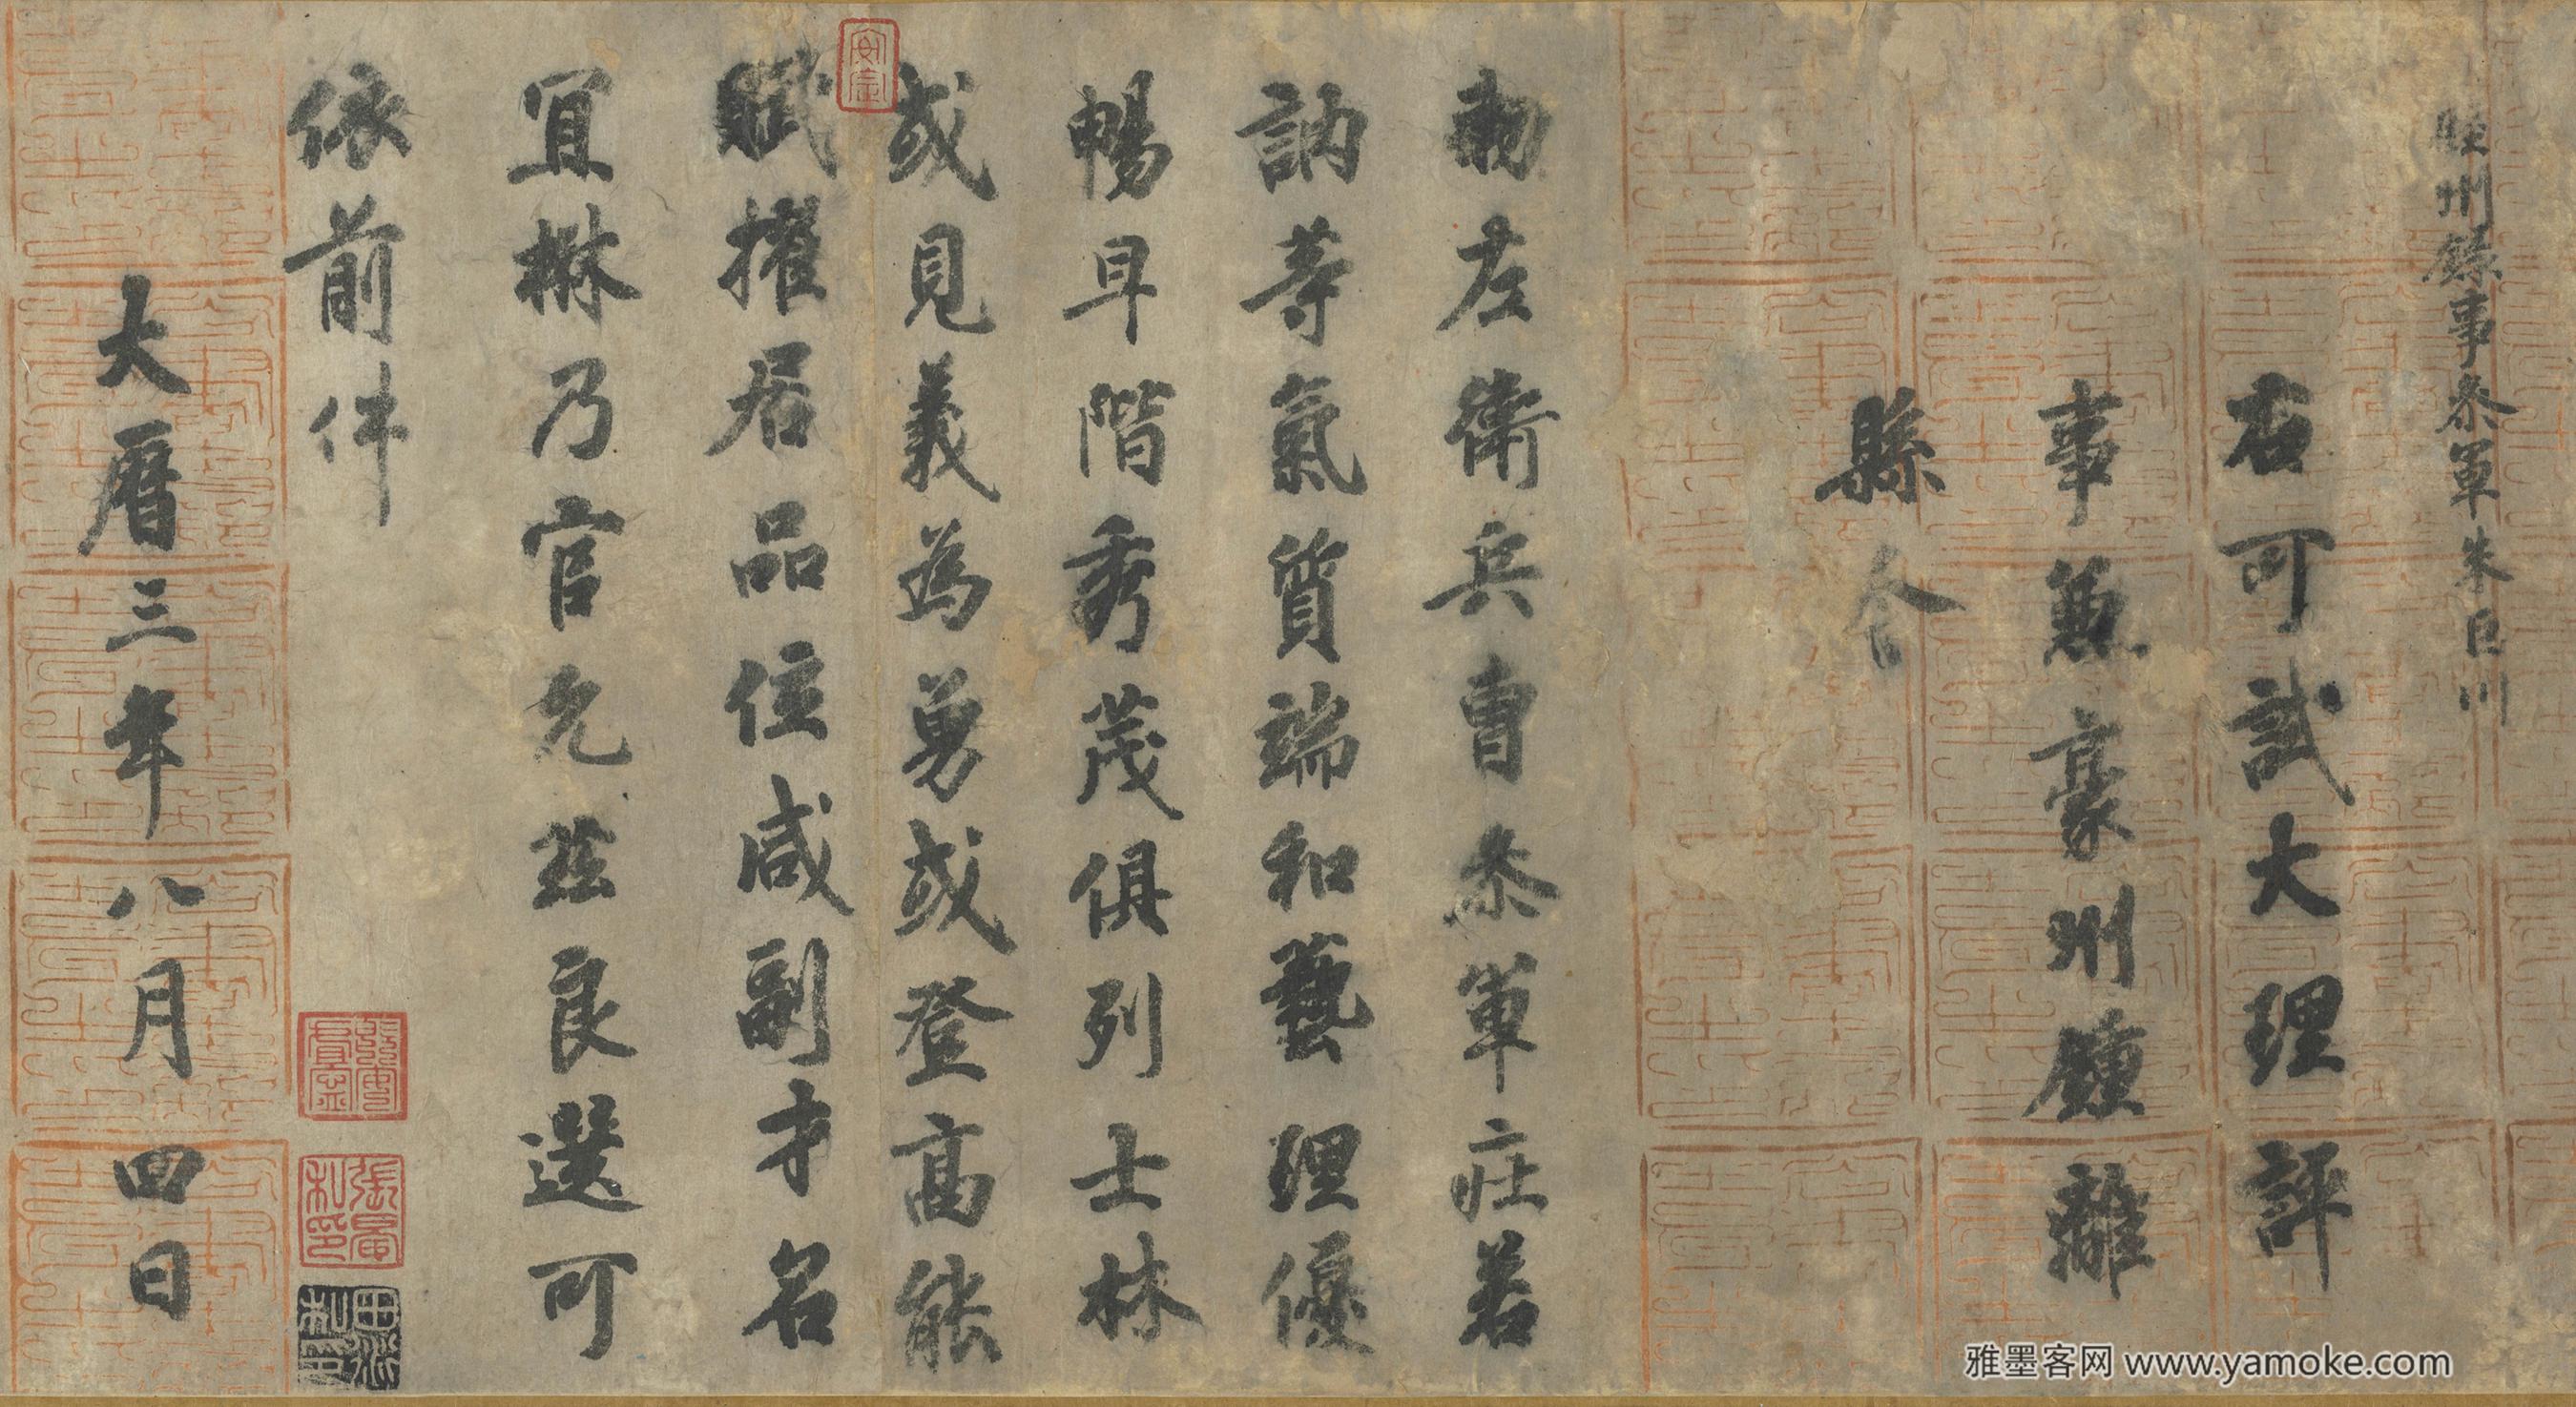 睦州録事參軍朱巨川
右可試大理評
事兼豪州鍾離
縣令
勑左衛兵曹參軍莊若
訥等氣質端和藝理優
暢早階秀茂俱列士林
或見義為勇或登高能
賦擢居品位咸副才名
宜楙乃官允茲良選可
依前件
大曆三年八月四日
雅墨客网 www.yamoke.com